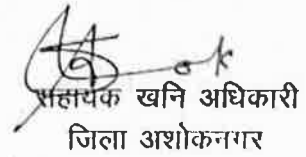 सहायक खनि अधिकारी
जिला अशोकनगर